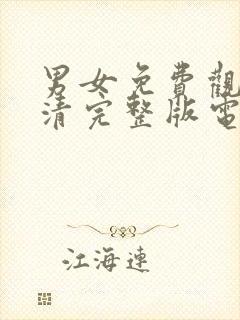 男女免費觀
清完整版電
江海連